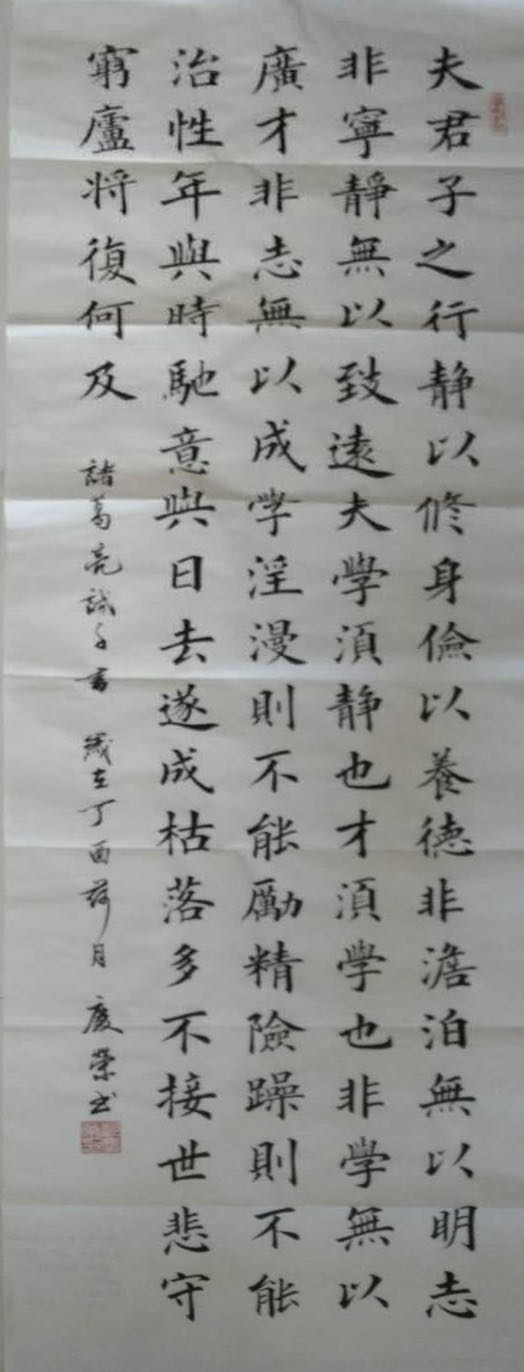 夫君子之行静以修身儉以養德非澹泊無以明志
非寧靜無以致遠夫學須静也才須學也非學無以
廣才非志無以成學淫漫則不能勵精險躁則不能
治性年與時馳意與日去遂成枯落多不接世悲守
窮廬將復何及
諸葛亮誡子書 歲在丁酉荷月 慶榮书